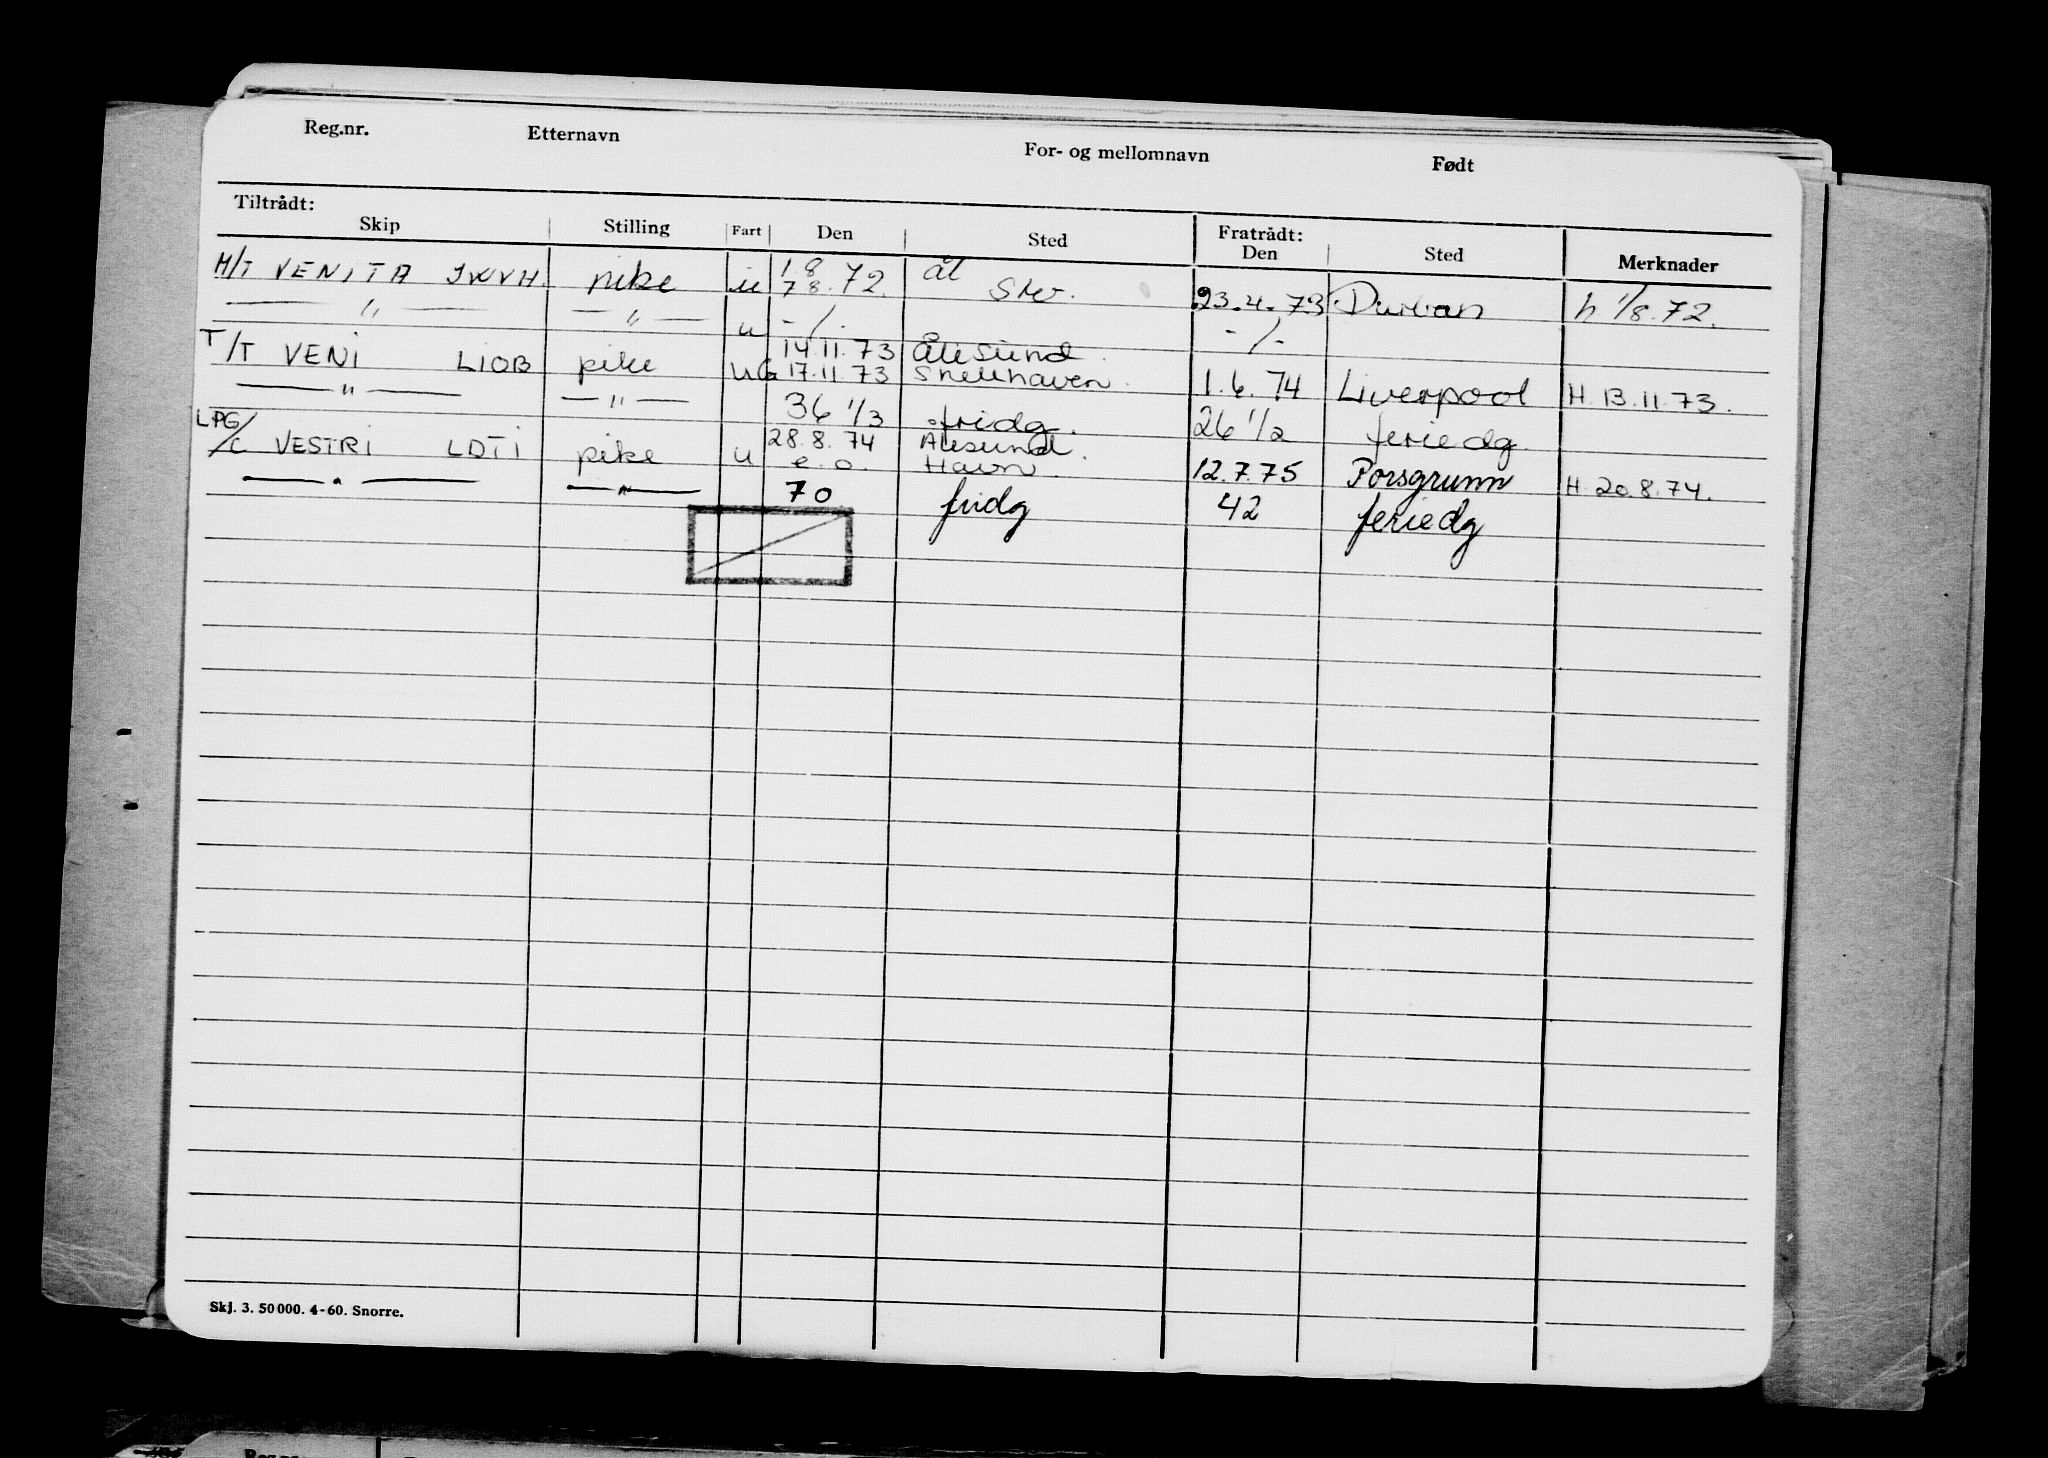 Reg.nr. Etternavn For- og mellomnavn Født
Tiltrådt: Fratrådt:
Skip Stilling Fart Den Sted Den Sted Merknader
M/T VENITA JWVH. pike u 1.8 7.8.72. ål Stv. 23.4.73 Durban h 1/8.72.
— " — — " — u -/- -/-
T/T VENI LIOB pike u G 14.11.73 17.11.73 Ålesund Shellhaven. 1.6.74 Liverpool H. 13.11.73.
— " — — " — 36 1/3 fridg. 26 1/2 feriedg.
LPG/C VESTRI LDTI pike u 28.8.74 e.o. Ålesund. Havn 12.7.75 Porsgrunn H. 20.8.74.
— " — — " — 70 fridg 42 feriedg
Skj. 3. 50 000. 4-60. Snorre.